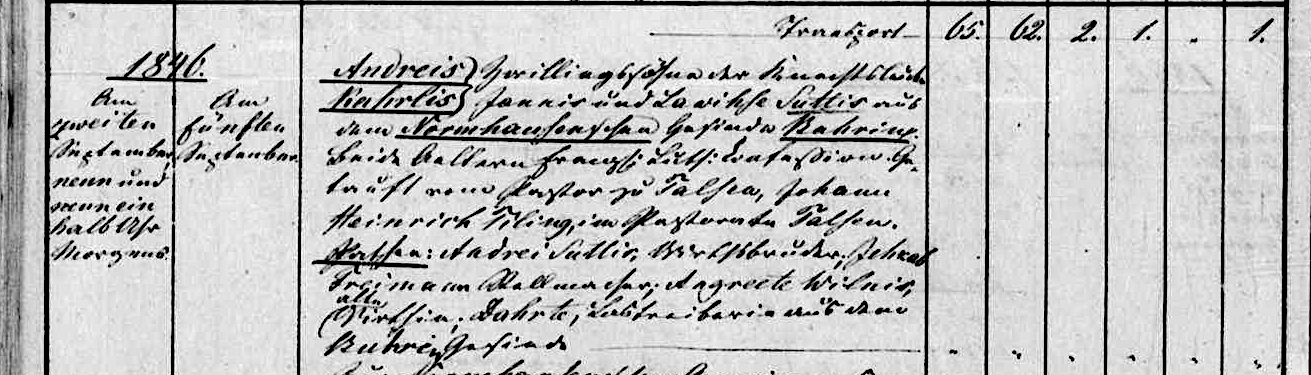 Transport 65. 62. 2. 1. " 1.
1846.
Am zweiten September neun und neun ein halb Uhr Morgens.
Am fünften September.
Andreis) Zwillingssöhne der Knechtsleute
Kahrlis) Jannis und Lawihse Sullis aus
dem Normhausenschen Gesinde
Beide Aeltern Evangl: Luth: Confession. Ge-
tauft vom Pastor zu Talsen, Johann
Heinrich Tiling, im Pastorate Talsen.
Pathen: Andrei Sullis, Wirthsbruder, Jehkab
Freimann Stellmacher; Angreete Wilnis,
alte
Wirthin; Dahrte, Lostreiberin aus dem
Gesinde